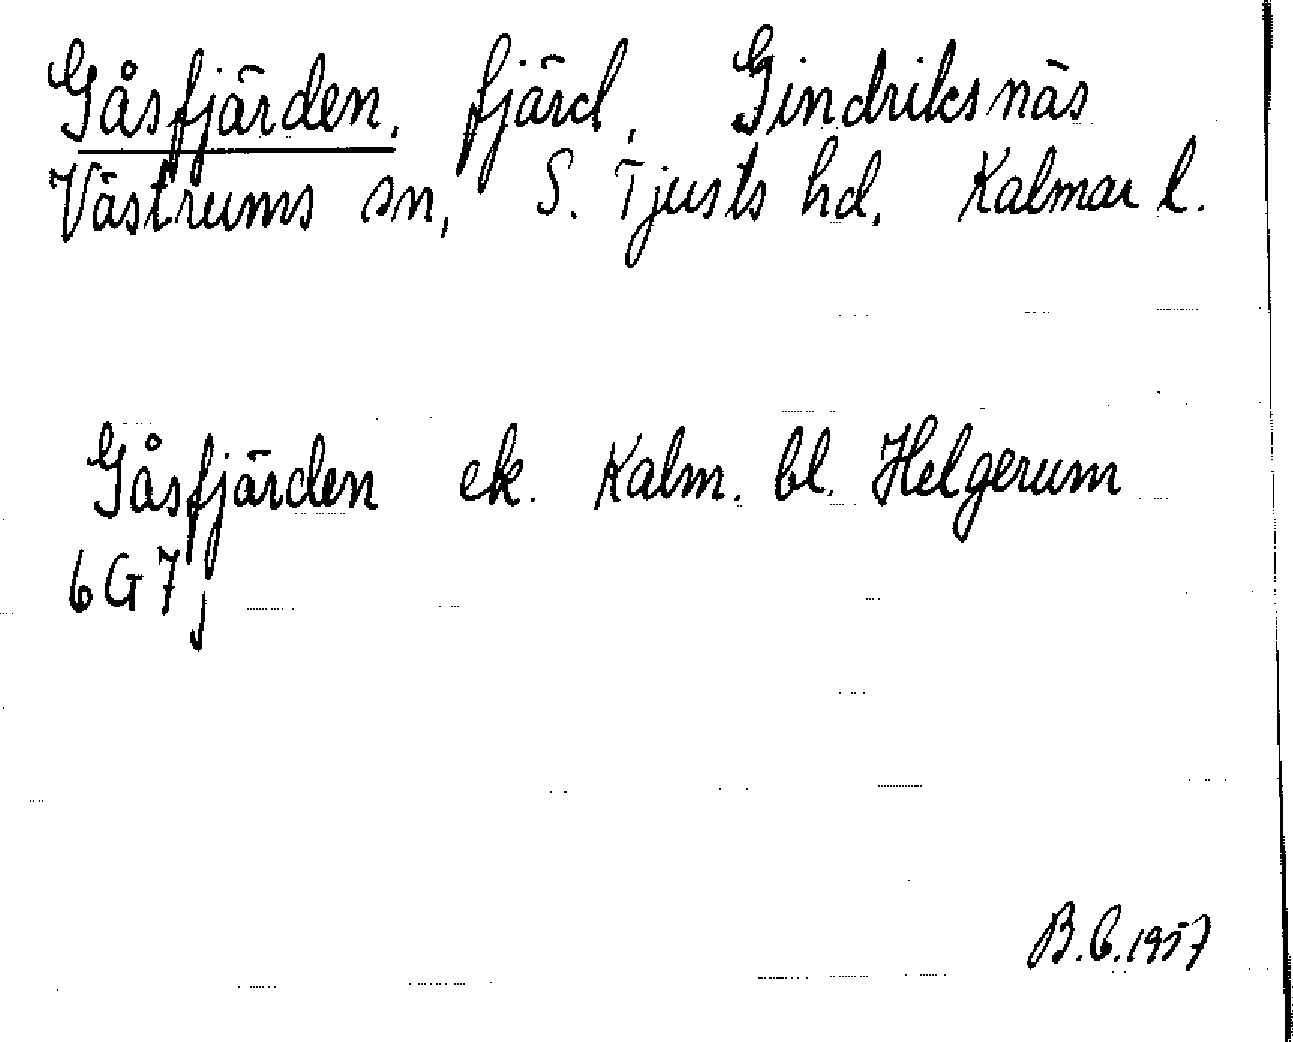 Gåsfjärden, fjärd, Gindriksnäs
Västrums sn, S. Tjusts hd, Kalmar l.
Gåsfjärden ek. Kalm. bl. Helgerum
6G7j
B.C. 1957